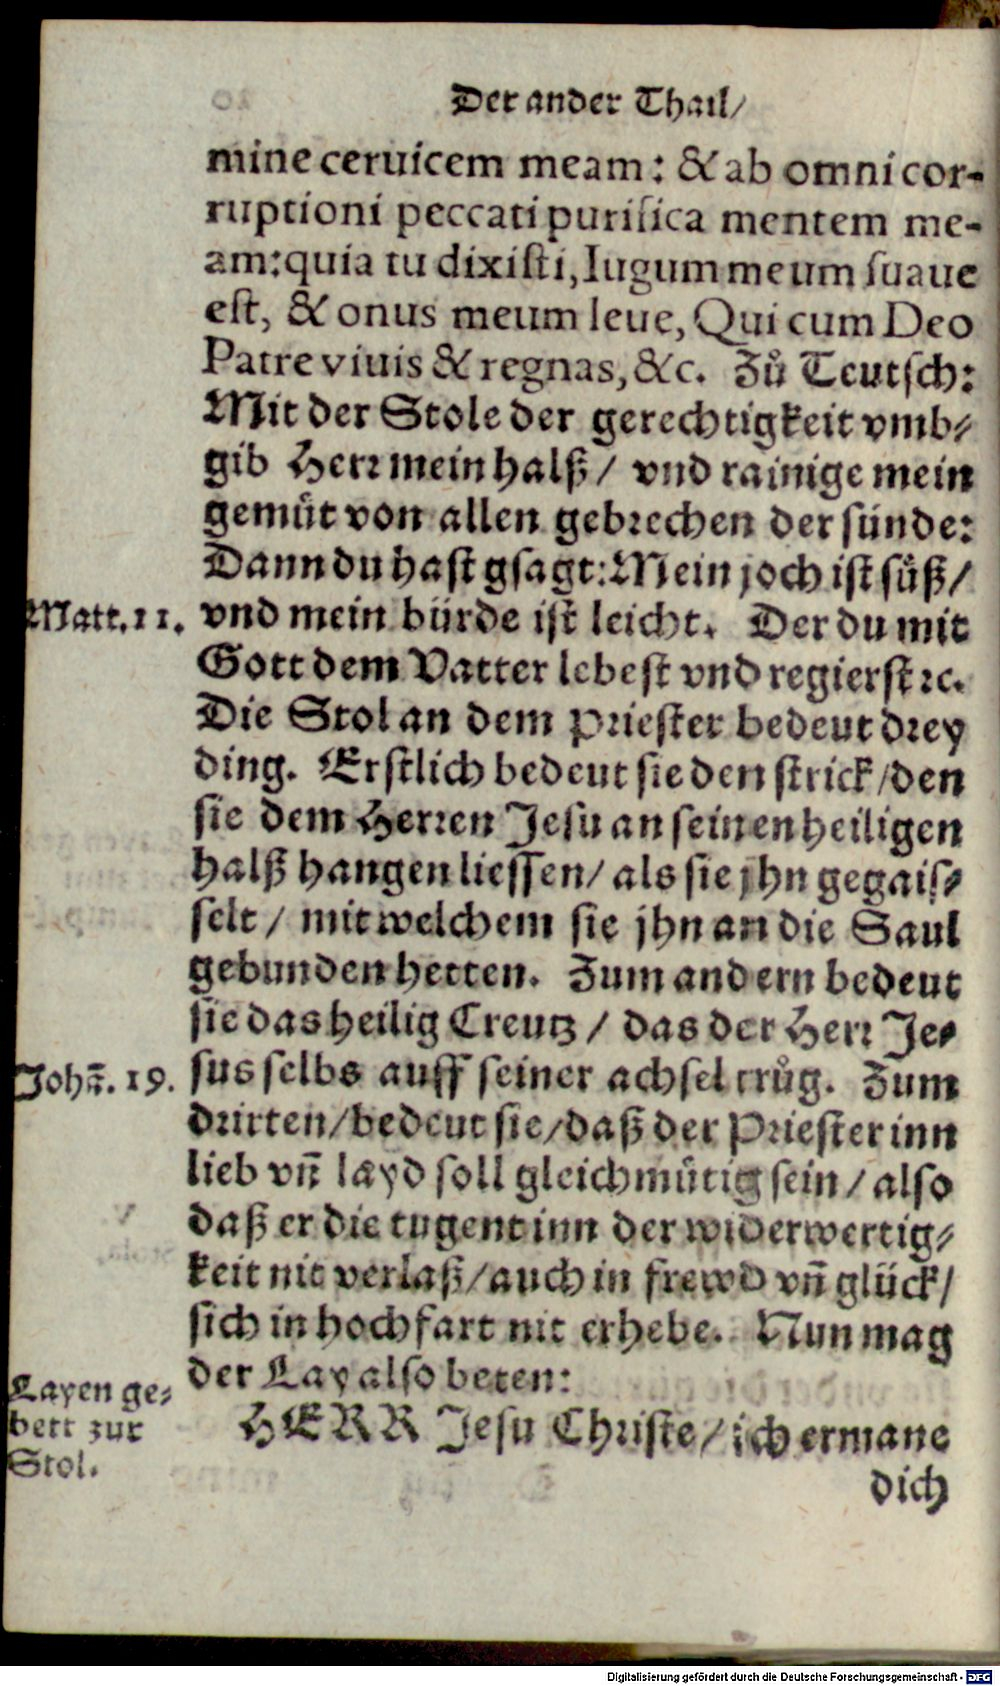 Der ander Thail/
mine ceruicem meam: & ab omni cor-
ruptioni peccati purifica mentem me-
am: quia tu dixisti, Iugum meum suaue
est, & onus meum leue, Qui cum Deo
Patre viuis & regnas, &c. Zů Teutsch:
Mit der Stole der gerechtigkeit vmb-
gib Herr mein halß/ vnd rainige mein
gemüt von allen gebrechen der sünde:
Dann du hast gsagt: Mein joch ist süß/
Matt. 11. vnd mein bürde ist leicht. Der du mit
Gott dem Vatter lebest vnd regierst ꝛc.
Die Stol an dem Priester bedeut drey
ding. Erstlich bedeut sie den strick/ den
sie dem Herren Jesu an seinen heiligen
halß hangen liessen/ als sie jhn gegais-
selt/ mit welchem sie jhn an die Saul
gebunden hetten. Zum andern bedeut
sie das heilig Creutz/ das der Herr Je-
Johã. 19. sus selbs auff seiner achsel trůg. Zum
dritten/ bedeut sie/ daß der Priester inn
lieb vñ layd soll gleichmütig sein/ also
daß er die tugent inn der widerwertig-
keit nit verlaß/ auch in frewd vñ glück/
sich in hochfart nit erhebe. Nun mag
der Lay also beten:
Layen ge-
bett zur
Stol.
HERR Jesu Christe/ ich ermane
dich
Digitalisierung gefördert durch die Deutsche Forschungsgemeinschaft - DFG